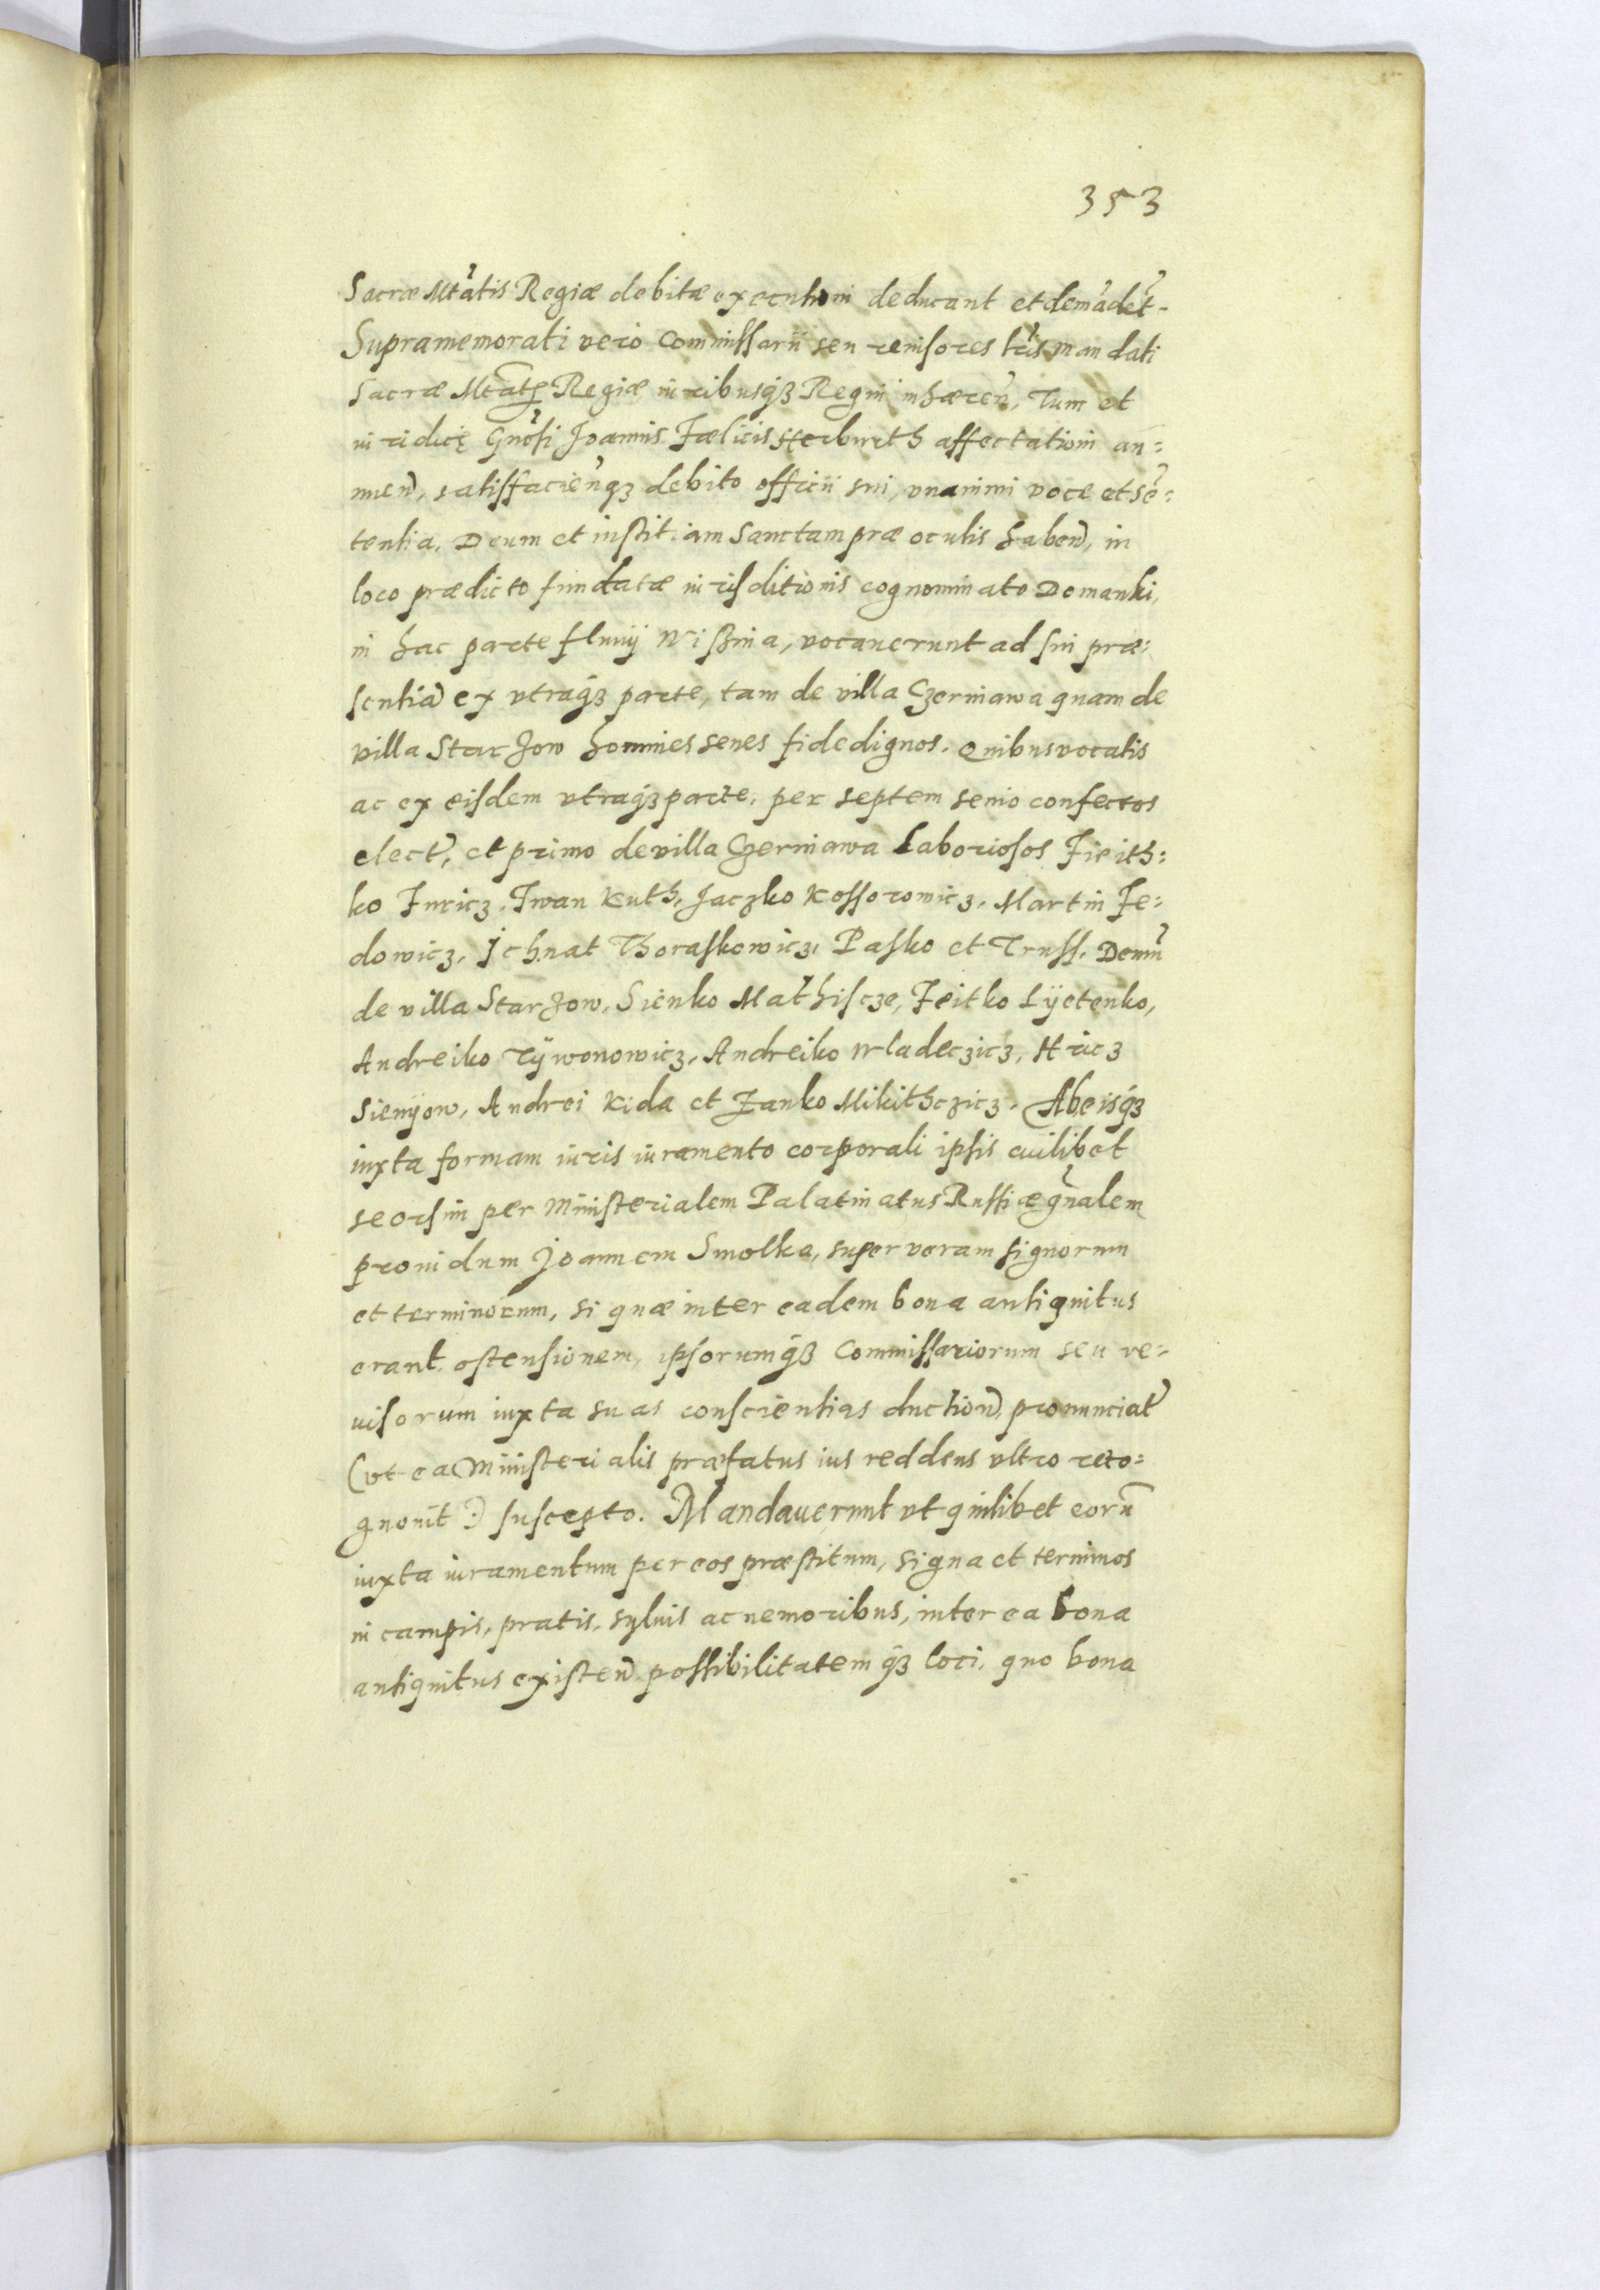 353
Sacræ Mtatis Regiæ debitæ executioni deducant et demãdẽt.
Supramemorati vero Commissarii seu reuisores lris mandati
Sacræ Mtatis Regiæ iuribusq₃ Regni inhæreñ, Tum et
iuridicę Gnosi Joannis Fælicis Herburth affectationi an=
nueñ, satisfacieñq₃ debito officii sui, vnanimi voce et sẽ=
tentia, Deum et iustitiam sanctam præ oculis habeñ, in
loco prædicto fundatæ iurisditionis cognominato Domanki,
in hac parte fluuij Wisznia, vocauerunt ad sui præ=
sentiã ex vtraq₃ parte, tam de villa Czerniawa quam de
villa Starzow homines senes fidedignos. Quibus vocatis
ac ex eisdem vtraq₃ parte, per septem senio confectos
elect, et primo de villa Czerniawa Laboriosos Fieith=
ko Juricz, Iwan Kuth, Jaczko Kossorowicz, Martin Fe=
dowicz, Jchnat Thoraskowicz, Pasko et Truss. Demũ
de villa Starzow, Sienko Mathiscze, Feitko Lÿetenko,
Andreiko Tÿwonowicz, Andreiko Wladeczicz, Hricz
Sienÿow, Andrei Kida et Janko Mikithczicz. Ab eisq₃
iuxta formam iuris iuramento corporali ipsis cuilibet
seorsim per Ministerialem Palatinatus Russiæ gnalem
prouidum Joannem Smolka, super veram signorum
et terminorum, si quæ inter eadem bona antiquitus
erant ostensionem, ipsorumq₃ Commissariorum seu re=
uisorum iuxta suas conscientias duction, pronunciat
(vt ea Ministerialis præfatus ius reddens vltro reco=
gnouit :) suscepto. Mandauerunt vt quilibet eorũ
iuxta iuramentum per eos præstitum, signa et terminos
in campis, pratis, syluis ac nemoribus, inter ea bona
antiquitus existeñ possibilitatemq₃ loci, quo bona